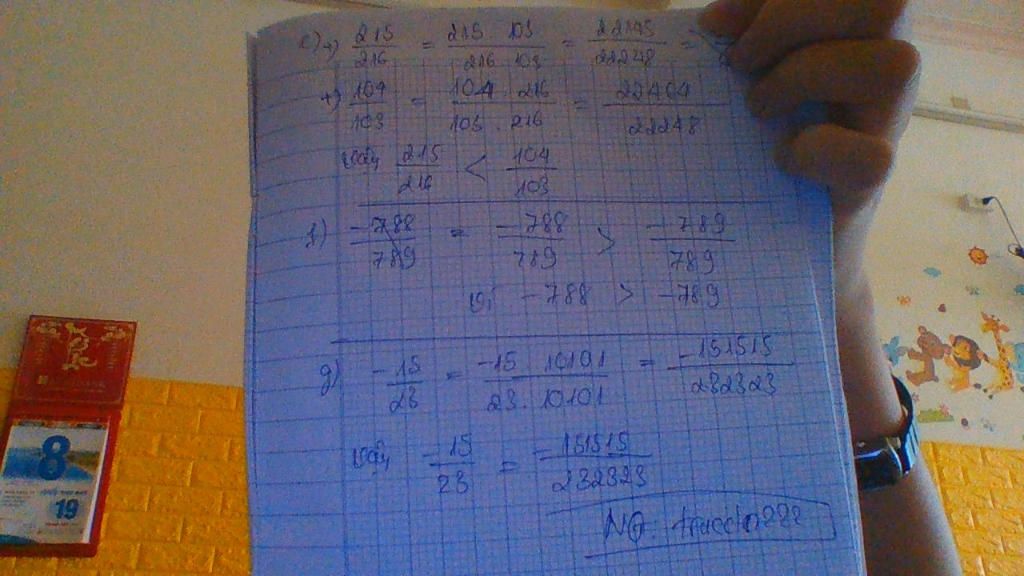 e) +) 215/216 = 215 . 103/216 . 103 = 22145/22248 =
+) 104/103 = 104 . 216/103 . 216 = 22464/22248
Vậy 215/216 < 104/103
f) -788/789 = -788/789 > -789/789
vì -788 > -789
g) -15/23 = -15 . 10101/23 . 10101 = -151515/232323
Vậy -15/23 = -151515/232323
8
19